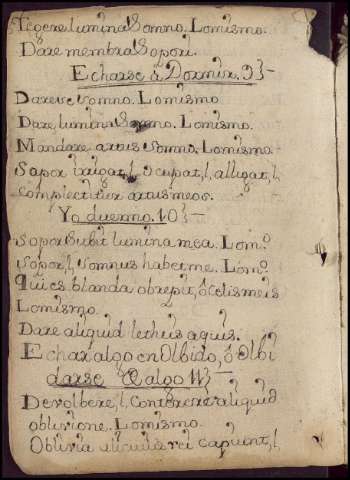 Tegere lumina Somno. Lo mismo.
Dare membra Sopori.
Echarse à Dormir. 9}
Dare se Somno. Lo mismo
Dare lumina Somno. Lo mismo.
Mandare artus Somno. Lo mismo.
Sopor irrigat, l, occupat, l, alligat, l,
complectitur artus meos.
Yo duermo. 10}
Sopor Subit lumina mea. Lo m.o
Sopor, l, Somnus habet me. Lo m.o
Quies blanda obrepit, ocelis meis
Lo mismo.
Dare aliquid letheis aquis.
Echar algo en Olbido, ò Olbi
darse de algo 11}
Devolbere, l, Conterere aliquid
oblivione. Lo mismo.
Oblivia alicuius rei capiunt, l,